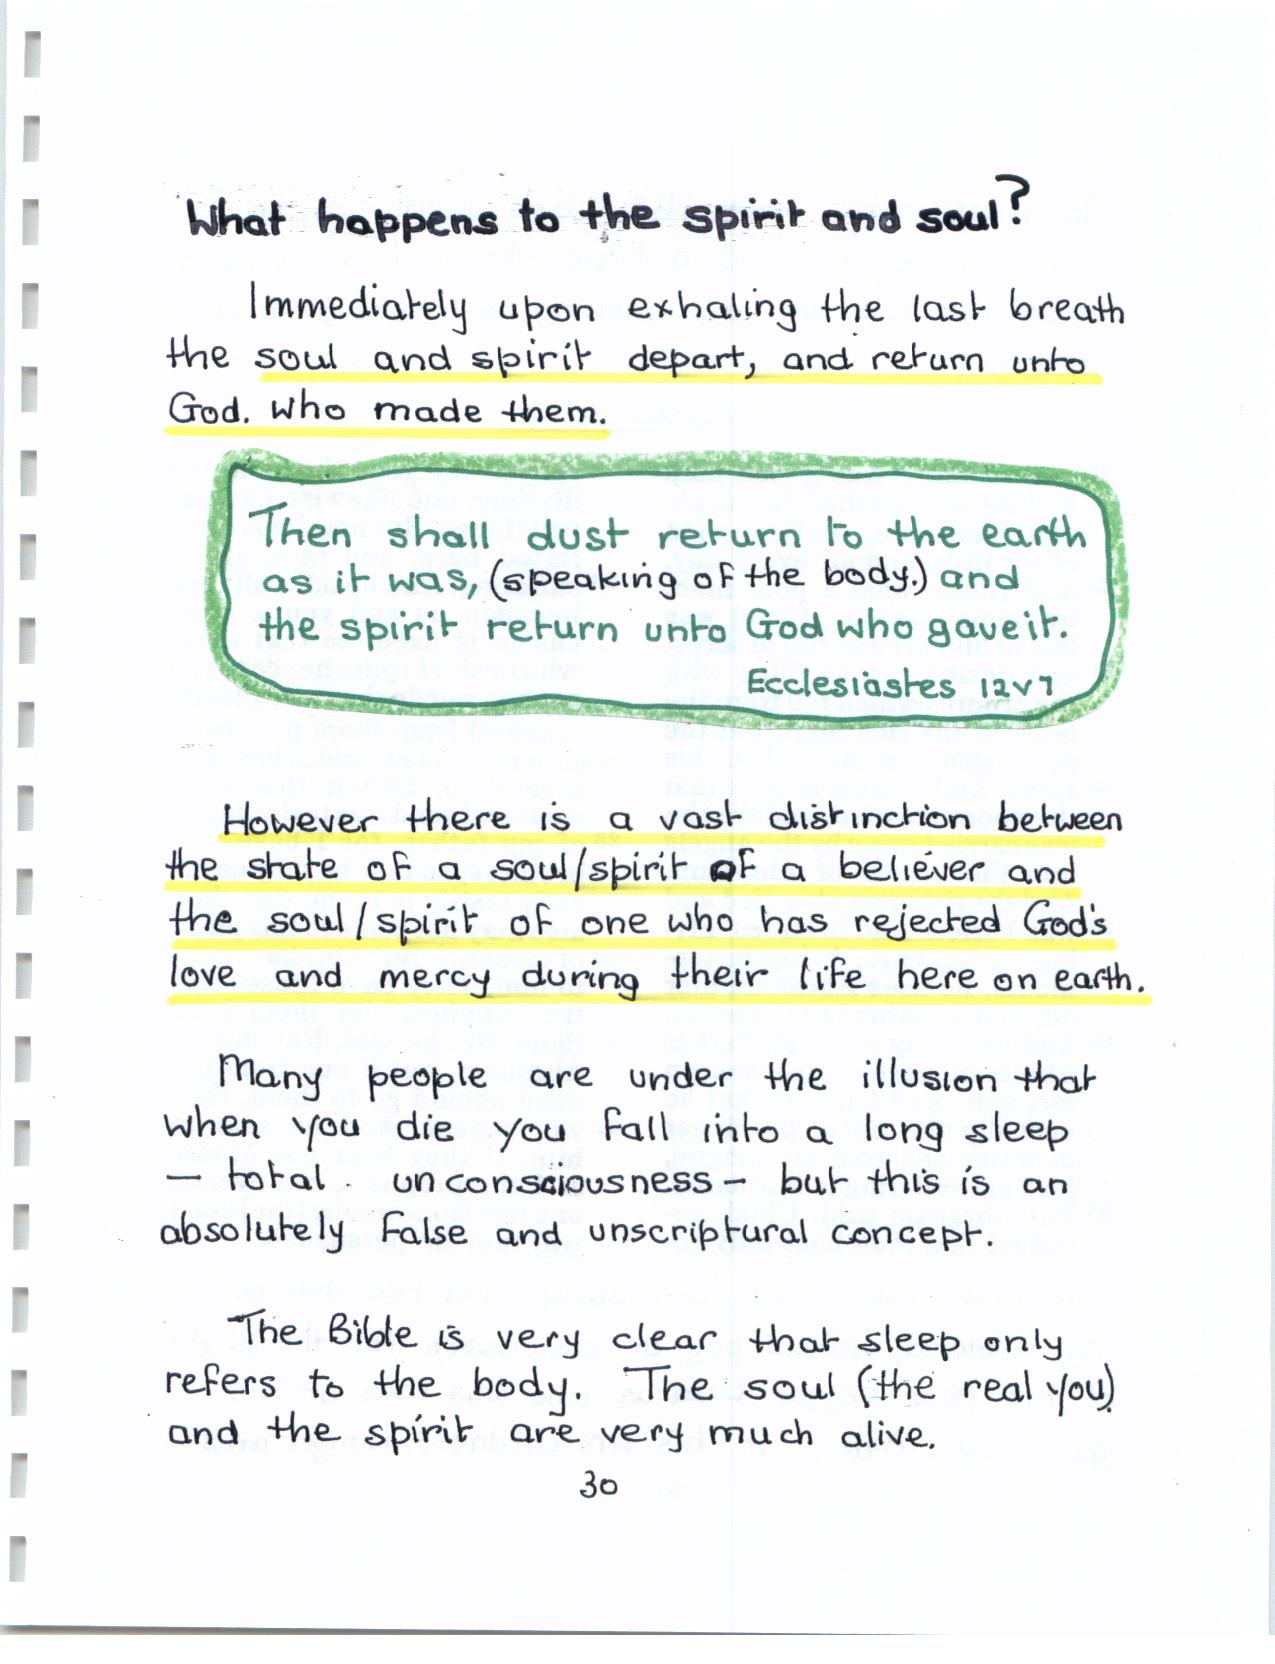 What happens to the spirit and soul?
Immediately upon exhaling the last breath
the soul and spirit depart, and return unto
God. who made them.
Then shall dust return to the earth
as it was, (speaking of the body.) and
the spirit return unto God who gave it.
Ecclesiastes 12v7
However there is a vast distinction between
the state of a soul/spirit of a believer and
the soul/spirit of one who has rejected God's
love and mercy during their life here on earth.
Many people are under the illusion that
when you die you fall into a long sleep
- total unconsciousness - but this is an
absolutely false and unscriptural concept.
The Bible is very clear that sleep only
refers to the body. The soul (the real you)
and the spirit are very much alive.
30